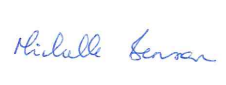 Michelle Benson